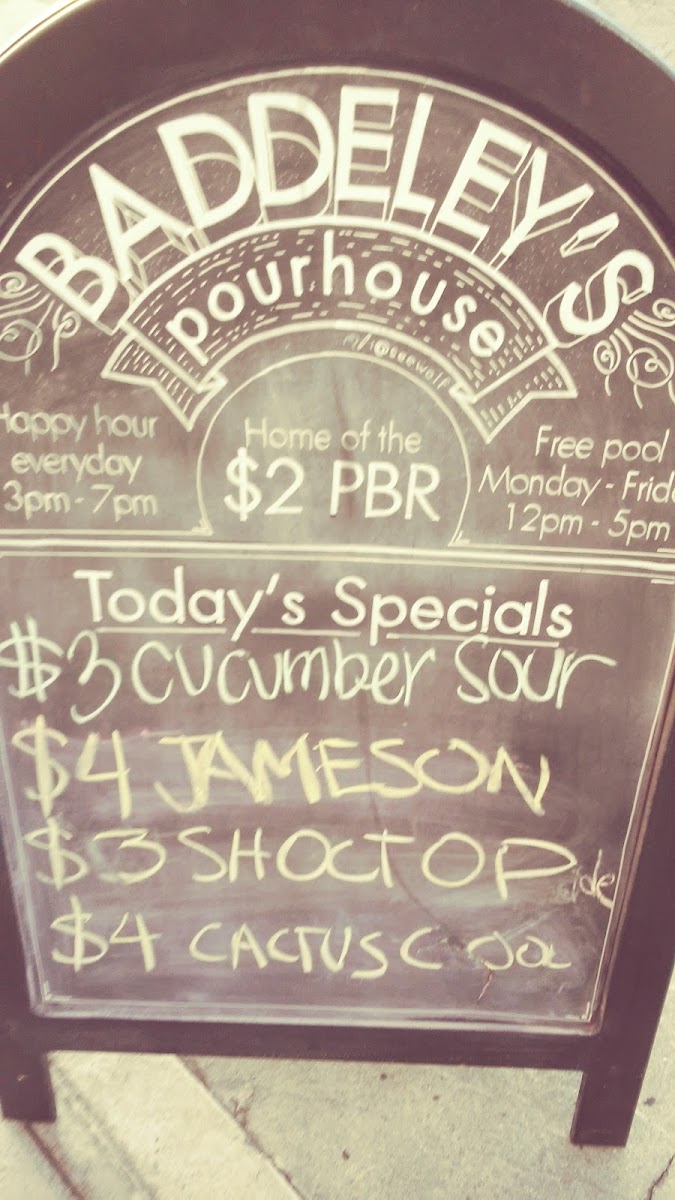 BADDELEY'S
pourhouse
Happy hour
everyday
3pm - 7pm
Home of the
$2 PBR
Free pool
Monday - Frid
12pm - 5pm
Today's Specials
$3 CUCUMBER SOUR
$4 JAMESON
$3 SHOCTOP
$4 CACTUS C